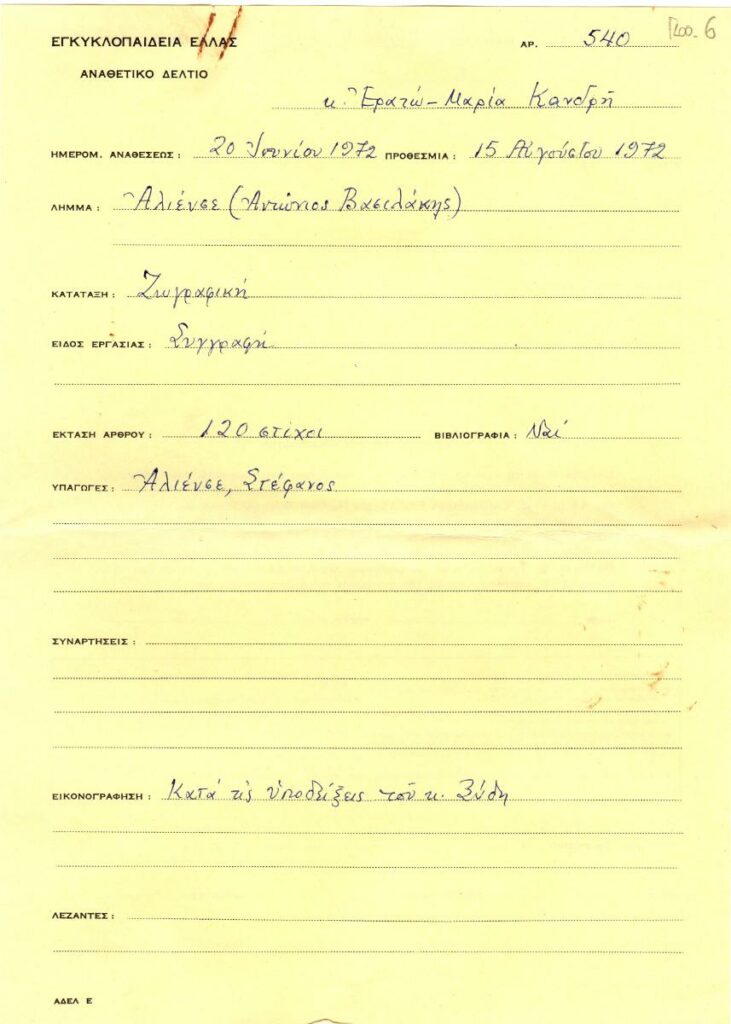 ΕΓΚΥΚΛΟΠΑΙΔΕΙΑ ΕΛΛΑΣ ΑΡ. 540
ΑΝΑΘΕΤΙΚΟ ΔΕΛΤΙΟ
κ. Ἐρατὼ-Μαρία Κανδρῆ
ΗΜΕΡΟΜ. ΑΝΑΘΕΣΕΩΣ: 20 Ἰουνίου 1972 ΠΡΟΘΕΣΜΙΑ: 15 Αὐγούστου 1972
ΛΗΜΜΑ: Ἀλιένσε (Ἀντώνιος Βασιλάκης)
ΚΑΤΑΤΑΞΗ: Ζωγραφική
ΕΙΔΟΣ ΕΡΓΑΣΙΑΣ: Συγγραφή
ΕΚΤΑΣΗ ΑΡΘΡΟΥ: 120 στίχοι ΒΙΒΛΙΟΓΡΑΦΙΑ: Ναί
ΥΠΑΓΩΓΕΣ: Ἀλιένσε, Στέφανος
ΣΥΝΑΡΤΗΣΕΙΣ:
ΕΙΚΟΝΟΓΡΑΦΗΣΗ: Κατά τίς ὑποδείξεις τοῦ κ. Ξύδη
ΛΕΖΑΝΤΕΣ:
ΑΔΕΛ Ε